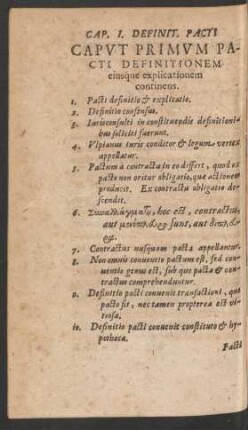 CAP. I. DEFINIT. PACTI
CAPVT PRIMVM PA-
CTI DEFINITIONEM
eiusque explicationem
continens.
1. Pacti definitio & explicatio.
2. Definitio consensus.
3. Iurisconsulti in constituendis definitioni-
bus soliciti fuerunt.
4. Vlpianus iuris conditor & legum vertex
appellatur.
5. Pactum à contractu in eo differt, quod ex
pacto non oritur obligatio, que actionem
producit. Ex contractu obligatio de-
scendit.
6. hoc est, contractus,
aut sunt, aut
7. Contractus nusquam pacta appellantur.
8. Non omnis conuentio pactum est, sed con-
uentio genus est, sub quo pacta & con-
tractus comprehenduntur.
9. Definitio pacti conuenit transactioni, quæ
pacto fit, nec tamen propterea est vi-
tiosa.
10. Definitio pacti conuenit constituto & hy-
potheca.
Pacti